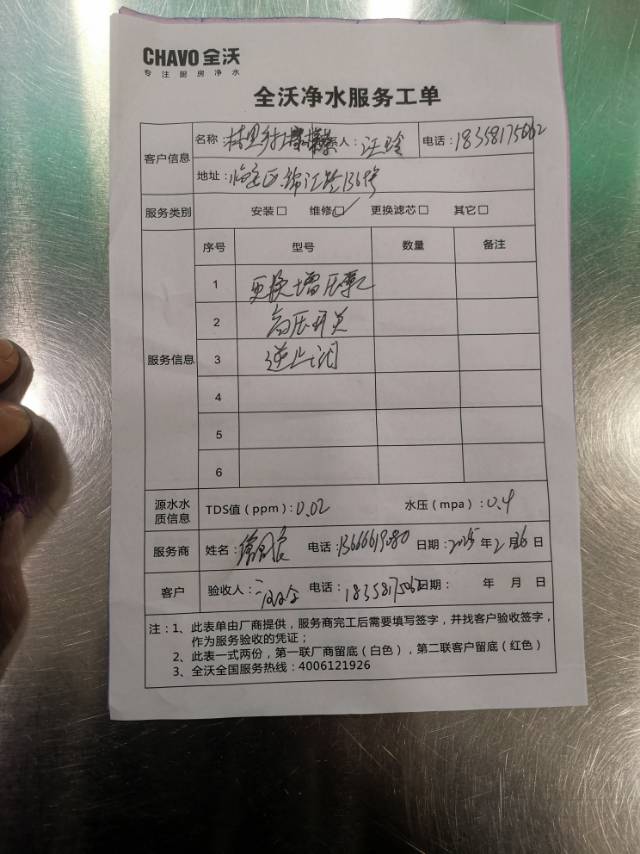 CHAVO 全沃
专注厨房净水
全沃净水服务工单
客户信息
名称: 联系人: 汪玲 电话: 18358175062
地址: 临安区锦江路136号
服务类别 安装□ 维修☑ 更换滤芯□ 其它□
服务信息
序号 型号 数量 备注
1 更换增压泵
2 高压开关
3 逆止阀
4
5
6
源水水质信息 TDS值(ppm):0.02 水压(mpa):0.4
服务商 姓名: 电话:13666619080 日期:2025年2月26日
客户 验收人: 电话:18358175062 日期: 年 月 日
注:1、此表单由厂商提供,服务商完工后需要填写签字,并找客户验收签字,
作为服务验收的凭证;
2、此表一式两份,第一联厂商留底(白色),第二联客户留底(红色)
3、全沃全国服务热线:4006121926